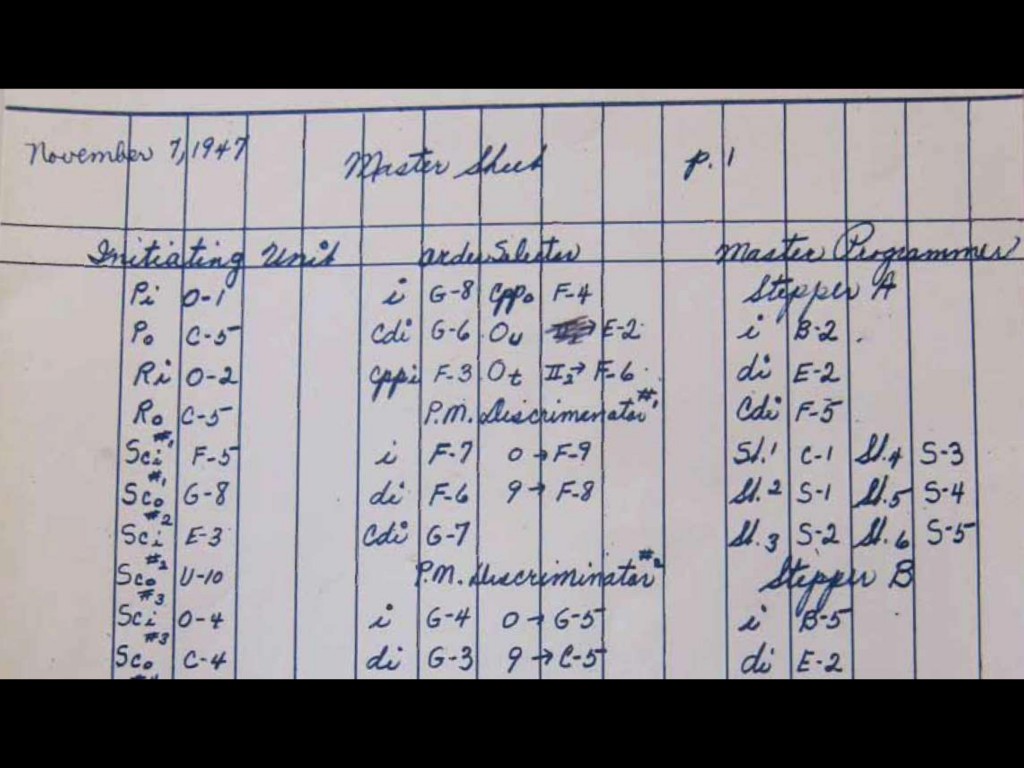 November 7, 1947 Master Sheet p. 1
Initiating Unit Order Selector Master Programmer
Pi O-1 i G-8 Cppo F-4 Stepper A
Po C-5 Cdi G-6 Ou → E-2 i B-2
Ri O-2 Cppi F-3 Ot II₂→ F-6 di E-2
Ro C-5 P.M. Discriminator #1 Cdi F-5
Sci #1 F-5 i F-7 0 → F-9 St.1 C-1 St.4 S-3
Sco #1 G-8 di F-6 9 → F-8 St.2 S-1 St.5 S-4
Sci #2 E-3 Cdi G-7 St.3 S-2 St.6 S-5
Sco #2 U-10 P.M. Discriminator #2 Stepper B
Sci #3 O-4 i G-4 0 → G-5 i B-5
Sco #3 C-4 di G-3 9 → C-5 di E-2